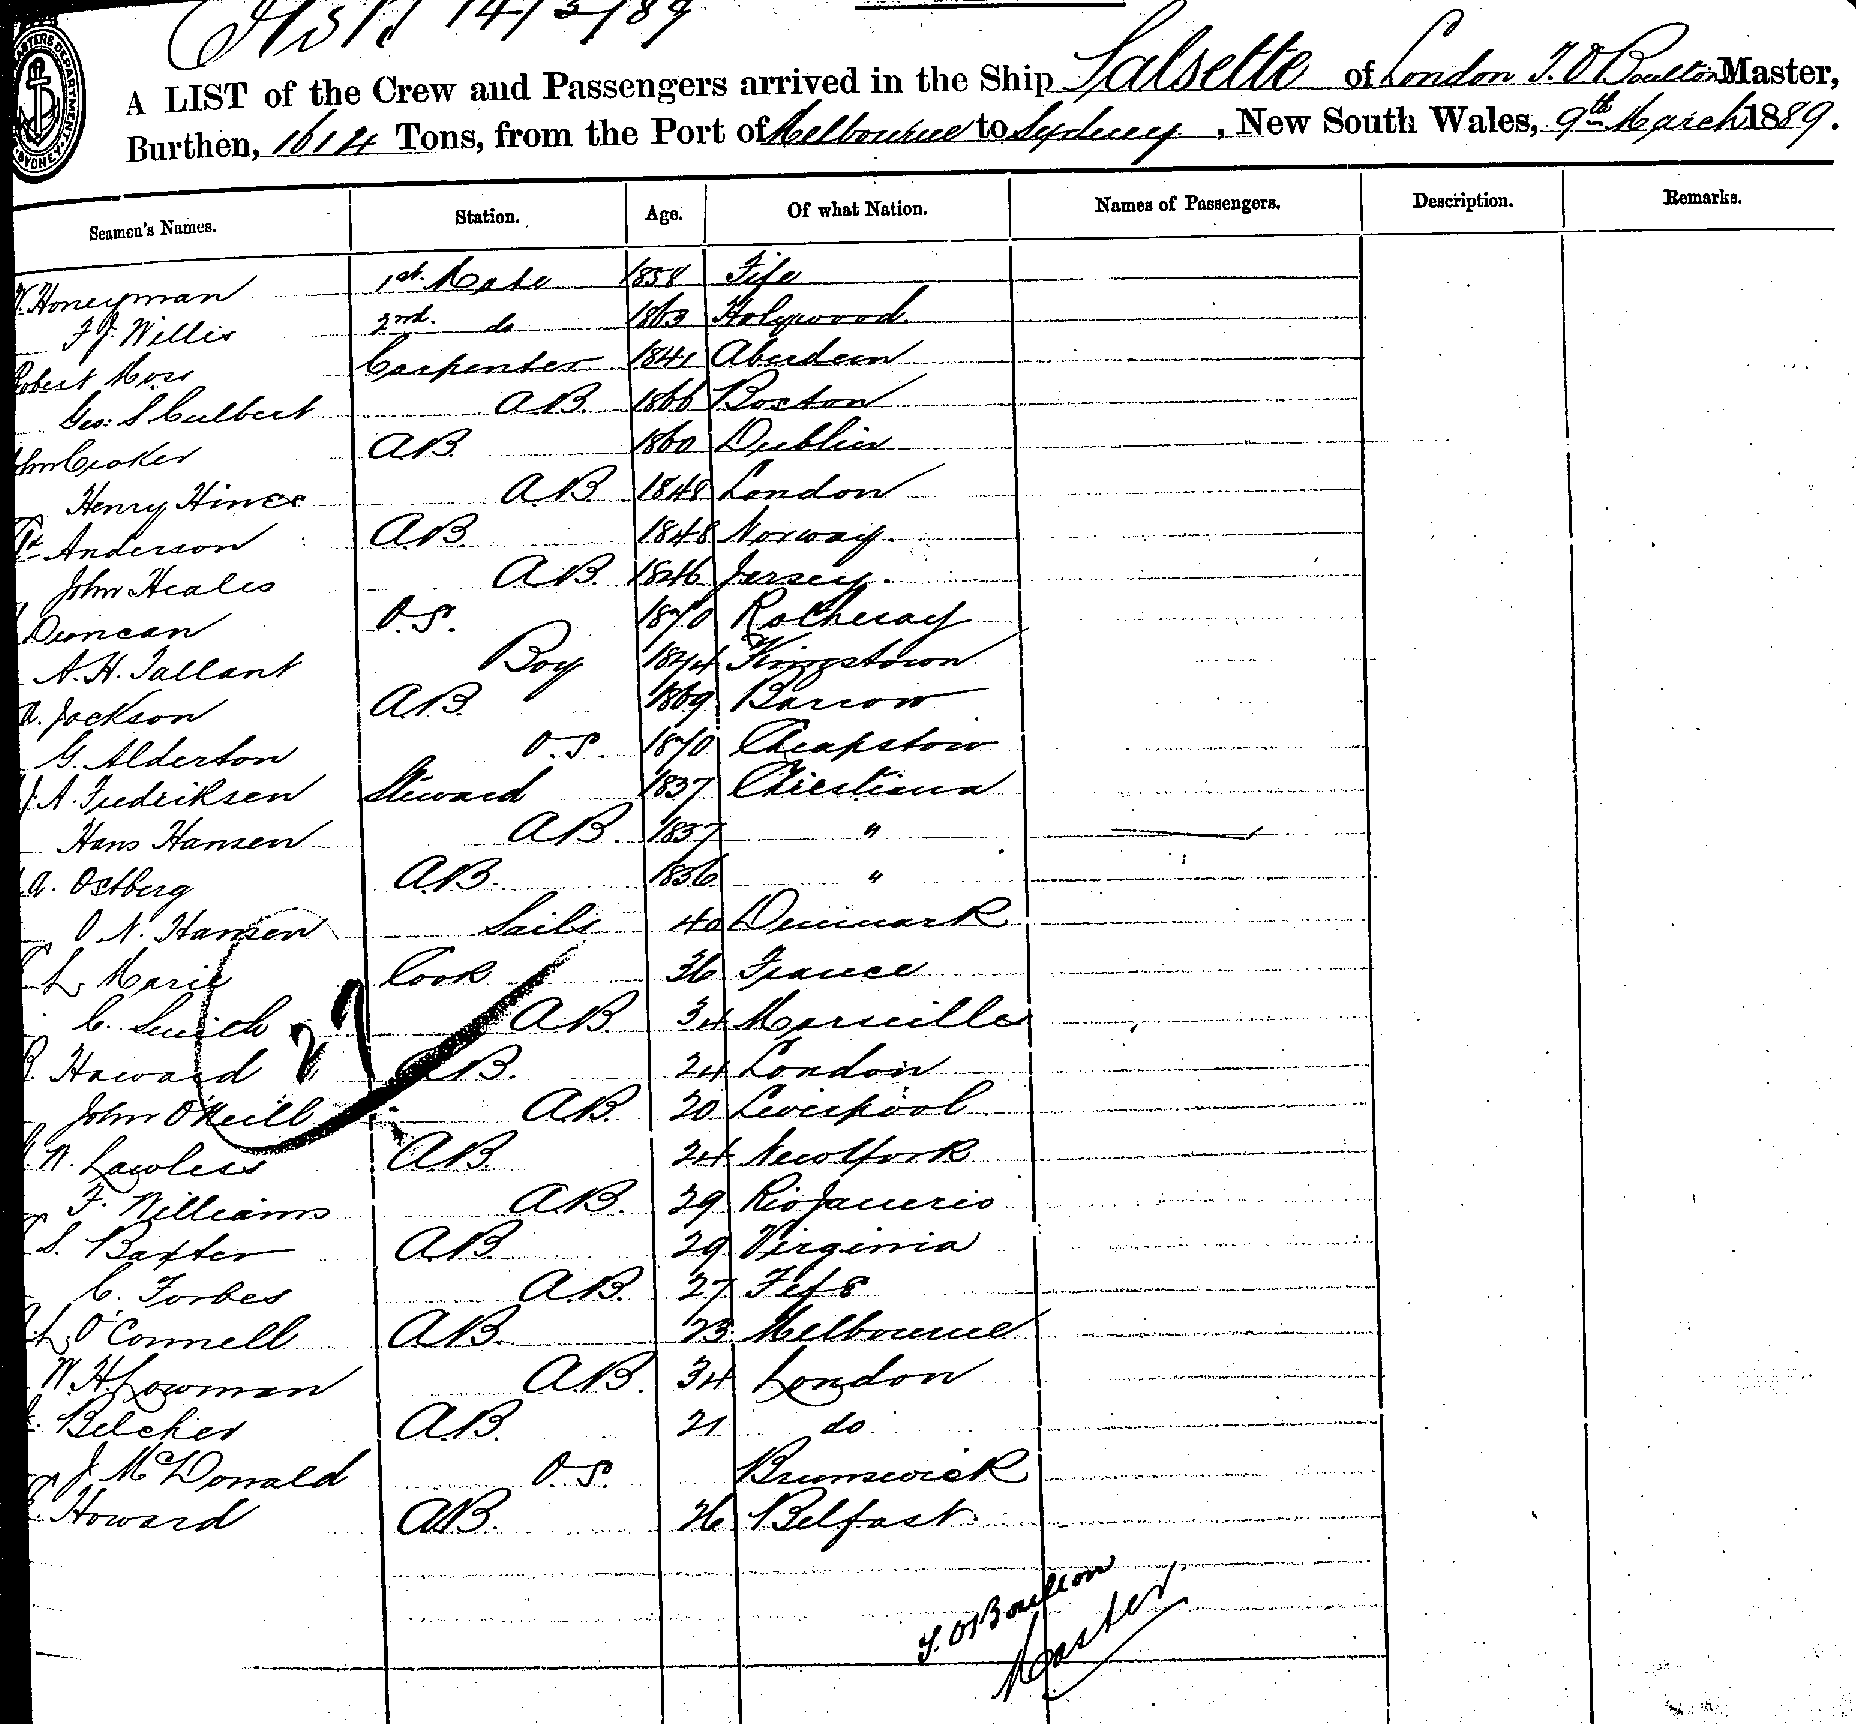 14/3/89
A LIST of the Crew and Passengers arrived in the Ship Salsette of London T. O Boulton Master,
Burthen, 1614 Tons, from the Port of Melbourne to Sydney, New South Wales, 9th March 1889.
Seamen's Names. Station. Age. Of what Nation. Names of Passengers. Description. Remarks.
Honeyman 1st. Mate 1858 Fife
F J. Willis 2nd. do 1863 Holywood
Robert Moss Carpenter 1841 Aberdeen
Geo: S Culbert A.B. 1866 Boston
John Croker A.B. 1860 Dublin
Henry Hince A.B 1848 London
Anderson A.B. 1848 Norway.
John Heales A.B. 1846 Jersey.
Duncan O.S. 1870 Rothesay
A. H. Tallant Boy 1874 Kingstown
A. Jackson A.B. 1869 Barrow
G. Alderton O.S. 1870 Cheapstow
J. A. Fredriksen Steward 1837 Christiana
Hans Hansen A.B. 1857 "
A. Ostberg A.B. 1856 "
O N. Hansen Sails 40 Denmark
L. Marie Cook 36 France
C. Smith A.B. 34 Marseilles
R. Haward A.B. 24 London
John O'Neill A.B. 20 Liverpool
N. Lawless A.B. 24 New York
F. Williams A.B. 29 Rio Janerio
S. Baxter A.B. 29 Virginia
C. Forbes A.B. 27 Fife
L. O'Connell A.B. 23 Melbourne
W. H. Lowman A.B. 34 London
Belcher A.B. 21 do
J. McDonald O.S. Brunswick
Howard A.B. 26 Belfast
29
T. O Boulton
Master